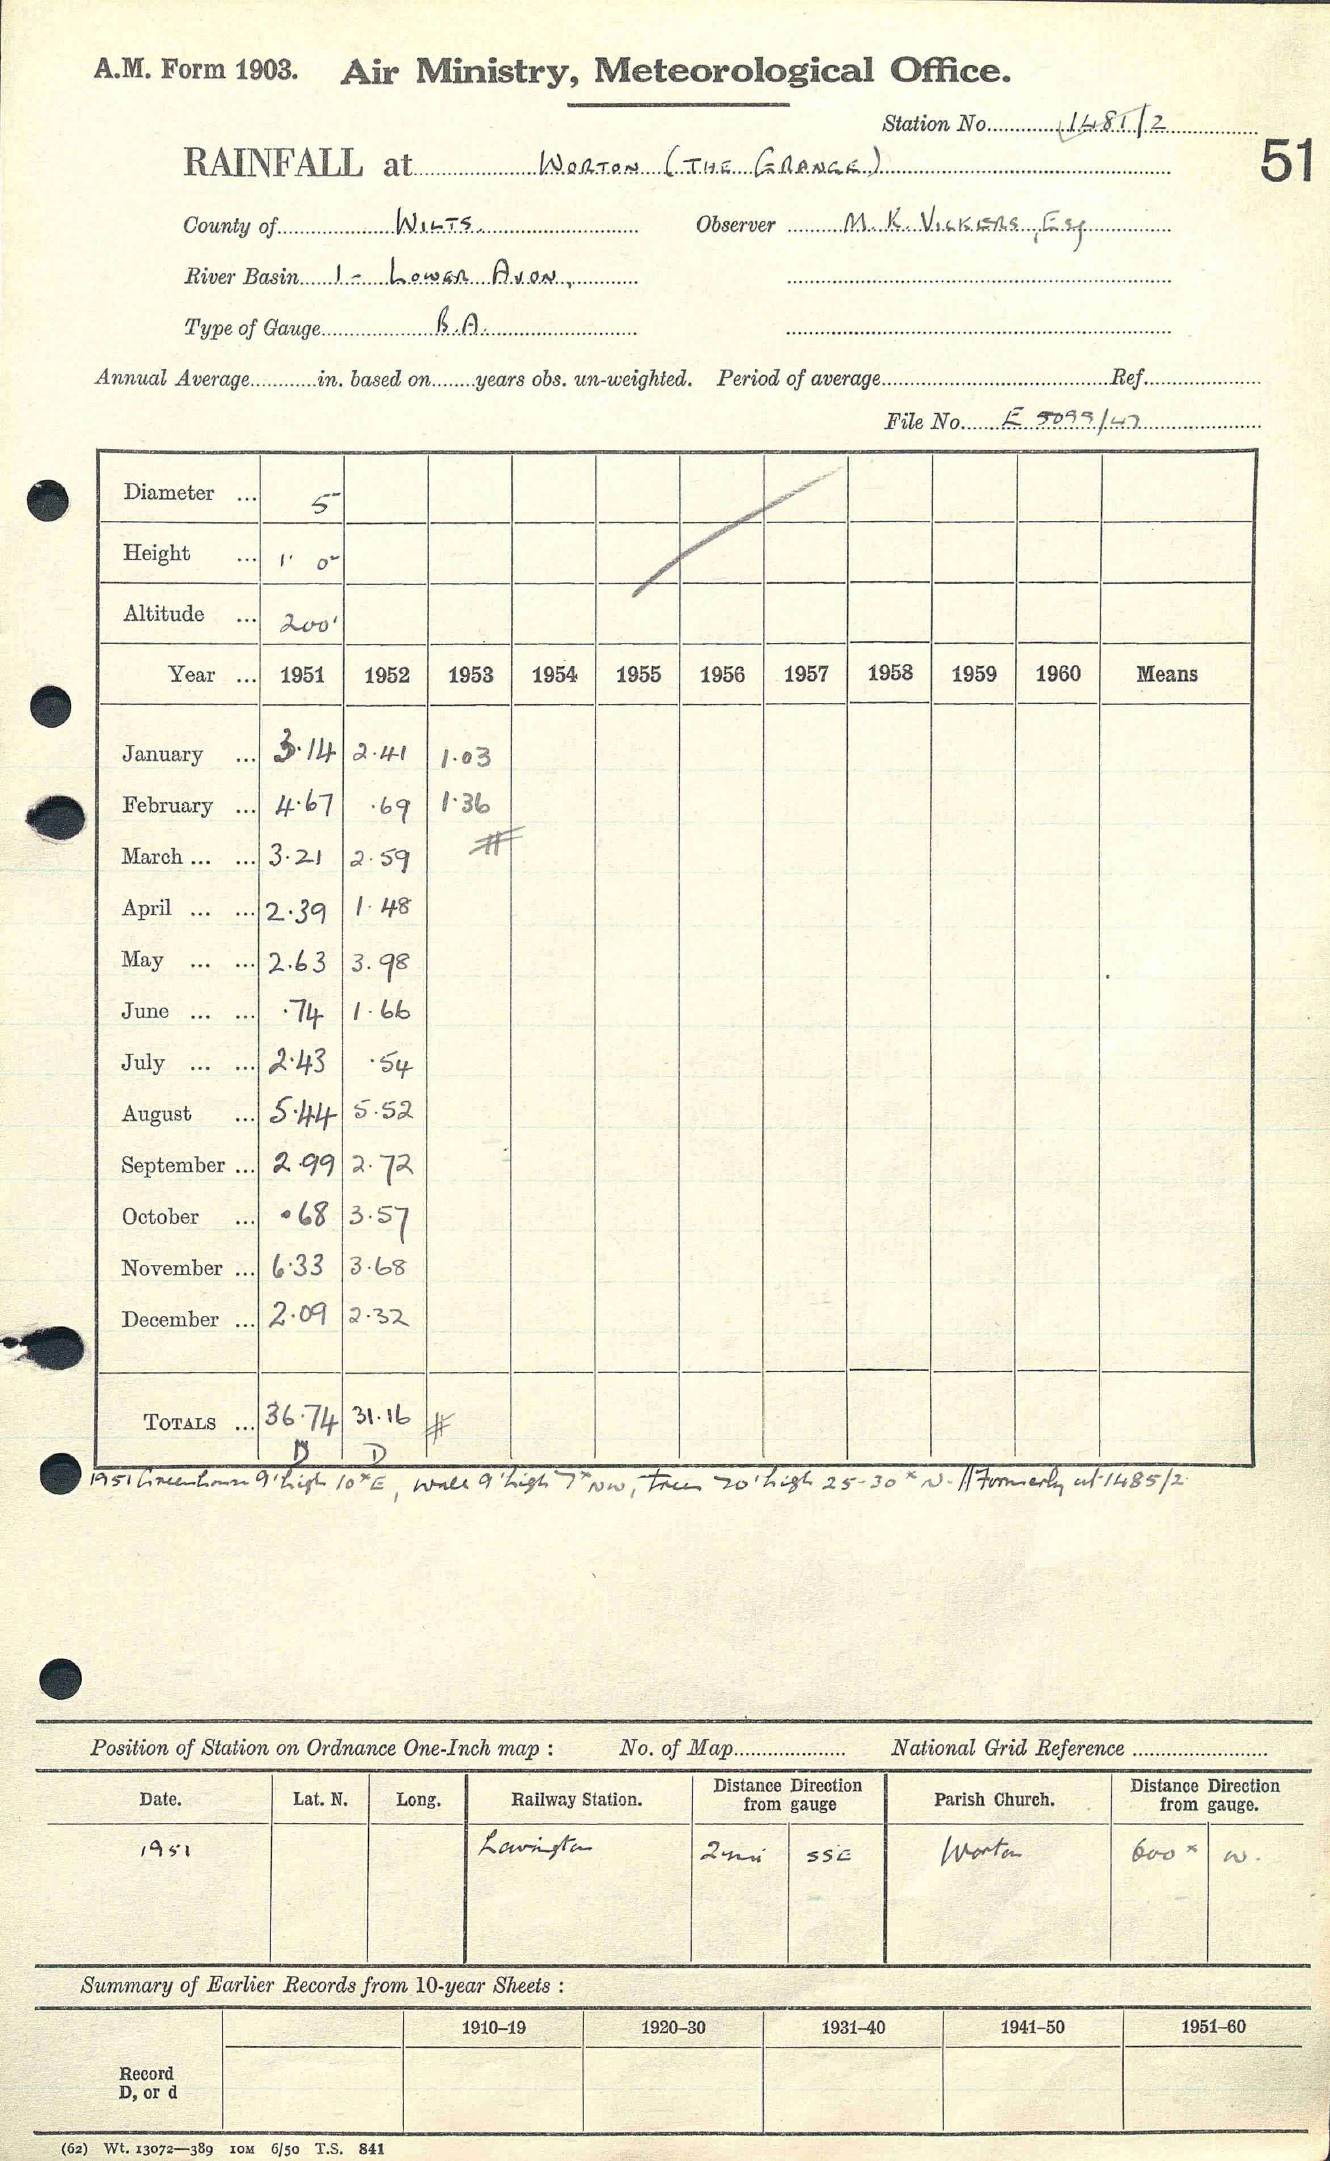 A.M. Form 1903. Air Ministry, Meteorological Office.
Station No. 1481/2
51
RAINFALL at WORTON (THE GRANGE)
County of WILTS. Observer M. K. VICKERS, Esq
River Basin 1 - LOWER AVON,
Type of Gauge B.A.
Annual Average in. based on years obs. un-weighted. Period of average Ref.
File No. E 5099/47
Diameter ... 5"
Height ... 1' 0"
Altitude ... 200'
Year ... 1951 1952 1953 1954 1955 1956 1957 1958 1959 1960 Means
January ... 3.14 2.41 1.03
February ... 4.67 .69 1.36
March ... ... 3.21 2.59 #
April ... ... 2.39 1.48
May ... ... 2.63 3.98
June ... ... .74 1.66
July ... ... 2.43 .54
August ... 5.44 5.52
September ... 2.99 2.72
October ... .68 3.57
November ... 6.33 3.68
December ... 2.09 2.32
TOTALS ... 36.74 31.16 #
D D
1951 Greenhouse 9' high 10x E, wall 9' high 7x NW, trees 70' high 25-30x N. // Formerly at 1485/2
Position of Station on Ordnance One-Inch map : No. of Map National Grid Reference
Date. Lat. N. Long. Railway Station. Distance Direction from gauge Parish Church. Distance Direction from gauge.
1951 Lavington 2 mi SSE Worton 600x W.
Summary of Earlier Records from 10-year Sheets :
1910–19 1920–30 1931–40 1941–50 1951–60
Record
D, or d
(62) Wt. 13072—389 10M 6/50 T.S. 841